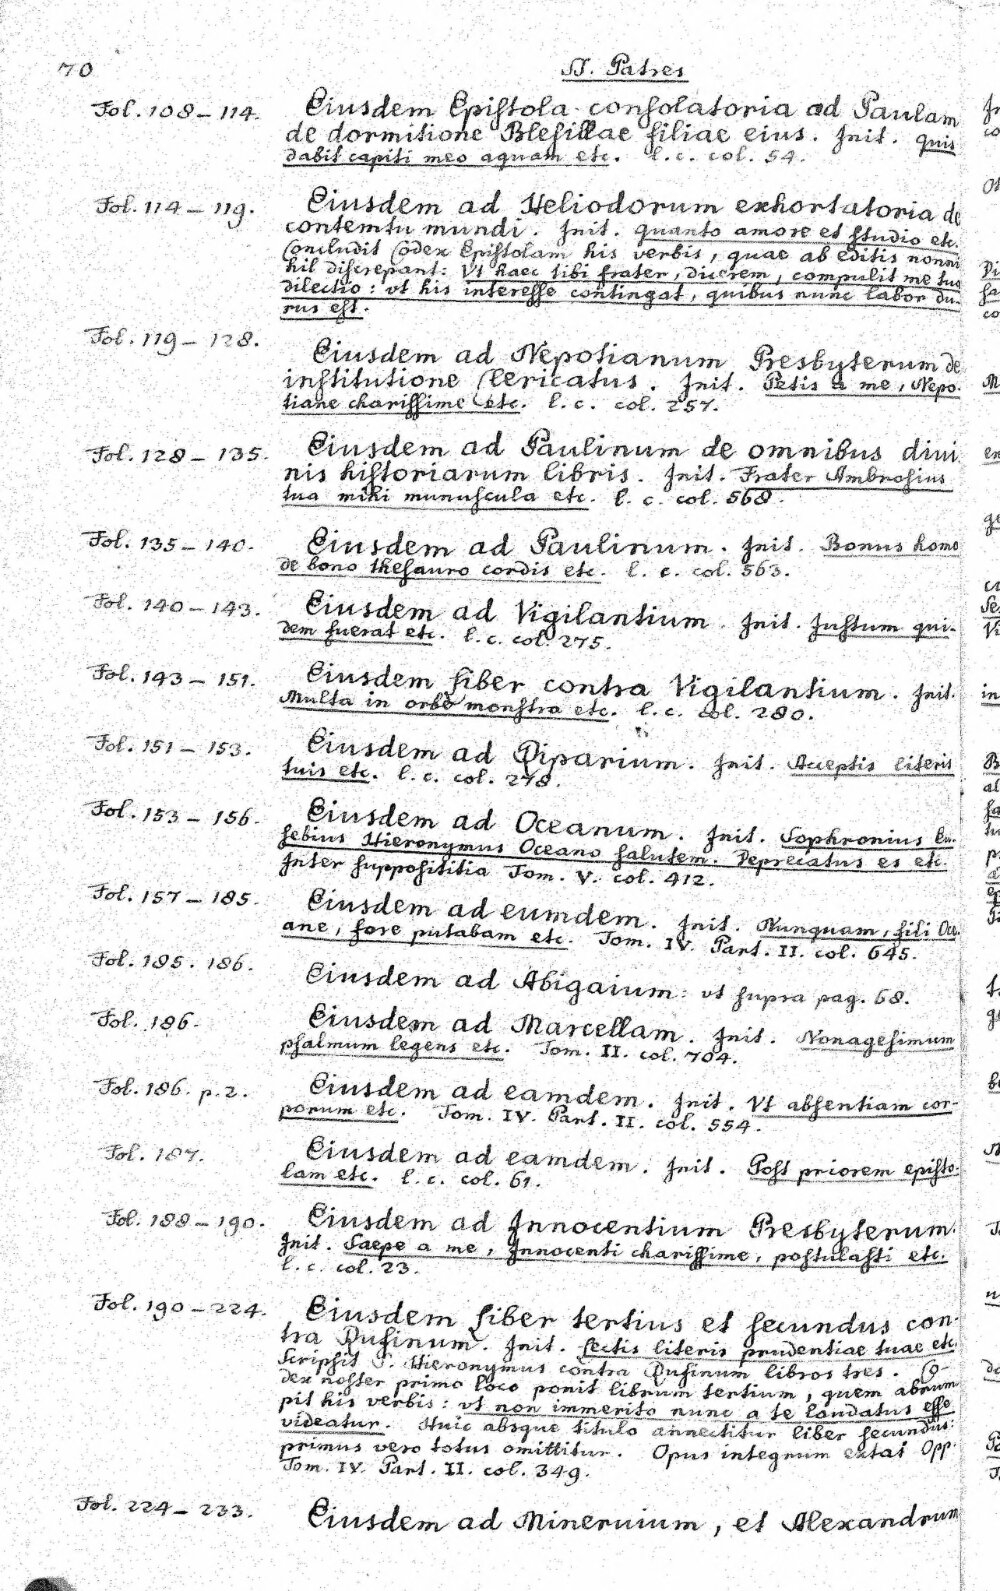 70
SS. Patres
Fol. 108 – 114. Eiusdem Epistola consolatoria ad Paulam
de dormitione Blesillae filiae eius. Init. quis
dabit capiti meo aquam etc. l. c. col. 54.
Fol. 114 – 119. Eiusdem ad Heliodorum exhortatoria de
contemtu mundi. Init. quanto amore et studio etc.
Concludit Codex Epistolam his verbis, quae ab editis nonni
hil discrepant: Vt haec tibi frater, dicerem, compulit me tua
dilectio: vt his interesse contingat, quibus nunc labor du-
rus est.
Fol. 119 – 128. Eiusdem ad Nepotianum Presbyterum de
institutione Clericatus. Init. Petis a me, Nepo-
tiane charissime etc. l. c. col. 257.
Fol. 128 – 135. Eiusdem ad Paulinum de omnibus divi
nis historiarum libris. Init. Frater Ambrosius
tua mihi munuscula etc. l. c. col. 568.
Fol. 135 – 140. Eiusdem ad Paulinum. Init. Bonus homo
de bono thesauro cordis etc. l. c. col. 563.
Fol. 140 – 143. Eiusdem ad Vigilantium. Init. Justum qui-
dem fuerat etc. l. c. col. 275.
Fol. 143 – 151. Eiusdem Liber contra Vigilantium. Init.
Multa in orbe monstra etc. l. c. col. 280.
Fol. 151 – 153. Eiusdem ad Riparium. Init. Acceptis literis
tuis etc. l. c. col. 278.
Fol. 153 – 156. Eiusdem ad Oceanum. Init. Sophronius Eu-
sebius Hieronymus Oceano salutem. Deprecatus es etc.
Inter supposititia Tom. V. col. 412.
Fol. 157 – 185. Eiusdem ad eumdem. Init. Nunquam, fili Oce-
ane, fore putabam etc. Tom. IV. Part. II. col. 645.
Fol. 185. 186. Eiusdem ad Abigaium: vt supra pag. 68.
Fol. 186. Eiusdem ad Marcellam. Init. Nonagesimum
psalmum legens etc. Tom. II. col. 704.
Fol. 186. p. 2. Eiusdem ad eamdem. Init. Vt absentiam cor-
porum etc. Tom. IV. Part. II. col. 554.
Fol. 187. Eiusdem ad eamdem. Init. Post priorem episto-
lam etc. l. c. col. 61.
Fol. 188 – 190. Eiusdem ad Innocentium Presbyterum.
Init. Saepe a me, Innocenti charissime, postulasti etc.
l. c. col. 23.
Fol. 190 – 224. Eiusdem Liber tertius et secundus con-
tra Rufinum. Init. Lectis literis prudentiae tuae etc
Scripsit S. Hieronymus contra Rufinum libros tres. Co-
dex noster primo loco ponit librum tertium, quem abrum
pit his verbis: vt non immerito nunc a te laudatus esse
videatur. Huic absque titulo annectitur liber secundus:
primus vero totus omittitur. Opus integrum extat Opp.
Tom. IV. Part. II. col. 349.
Fol. 224 – 233. Eiusdem ad Mineruium, et Alexandrum